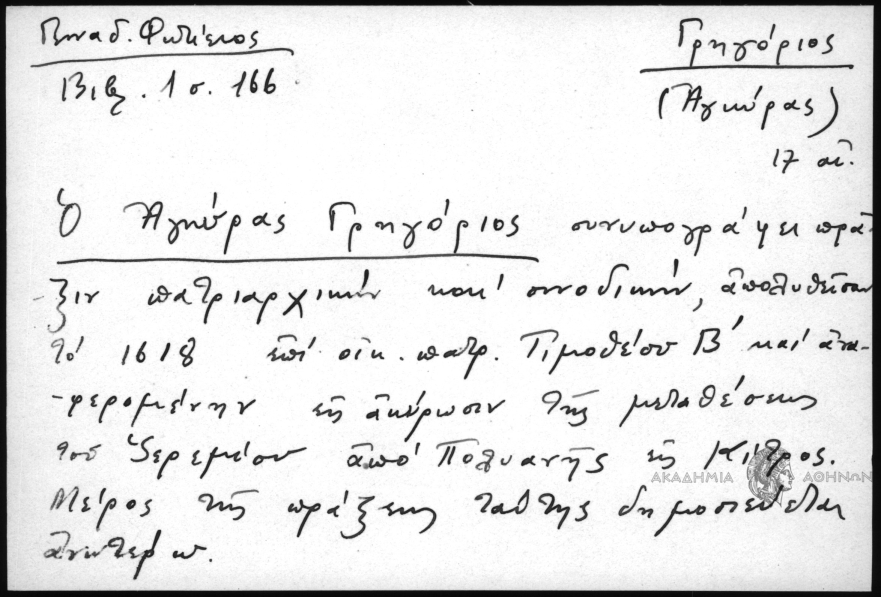 Γενναδ. Φωτίειος
Βιβ. 1 σ. 166
Γρηγόριος
(Ἀγκύρας)
17 αἰ.
Ὁ Ἀγκύρας Γρηγόριος συνυπογράφει πρᾶ-
-ξιν πατριαρχικήν καί συνοδικήν, ἀπολυθεῖσαν
τό 1618 ἐπί οἰκ. πατρ. Τιμοθέου Β' καί ἀνα-
-φερομένην εἰς ἀκύρωσιν τῆς μεταθέσεως
τοῦ Ἱερεμίου ἀπό Πολυανῆς εἰς Κίτρος.
ΑΚΑΔΗΜΙΑ ΑΘΗΝΩΝ
Μέρος τῆς πράξεως ταύτης δημοσιεύεται
ἀνωτέρω.